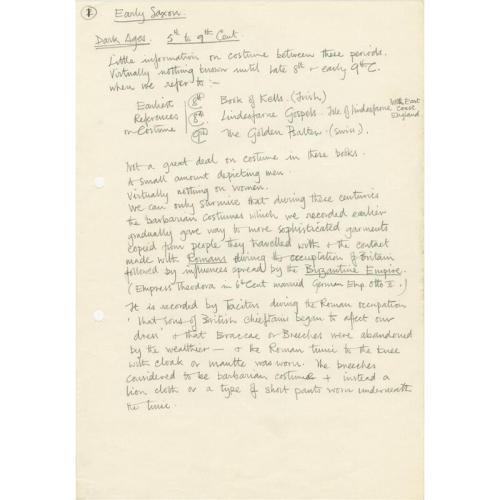 ① Early Saxon.
Dark Ages. 5th to 9th Cent.
Little information on costume between these periods.
Virtually nothing known until late 8th + early 9th C.
when we refer to :-
Earliest 8th Book of Kells. (Irish)
References 8th Lindesfarne Gospels. Isle of Lindesfarne North East Coast England
on Costume 9th The Golden Psalter. (Swiss).
Not a great deal on costume in these books.
A small amount depicting men.
Virtually nothing on women.
We can only surmise that during these centuries
the barbarian costumes which we recorded earlier
gradually gave way to more sophisticated garments
copied from people they travelled with + the contact
made with Romans during the occupation of Britain
followed by influences spread by the Byzantine Empire.
(Empress Theodora in 6th Cent married German Emp. Otto II.)
It is recorded by Tacitus during the Roman occupation
'that sons of British Chieftains began to affect our
dress' + that Braccae or Breeches were abandoned
by the wealthier — + the Roman tunic to the knee
with cloak or mantle was worn. The breeches
considered to be barbarian costume + instead a
lion cloth or a type of short pants worn underneath
the tunic.